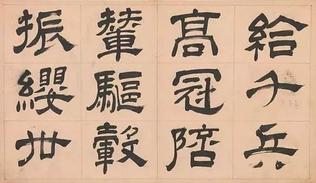 給千兵
高冠陪
輦驅轂
振纓世